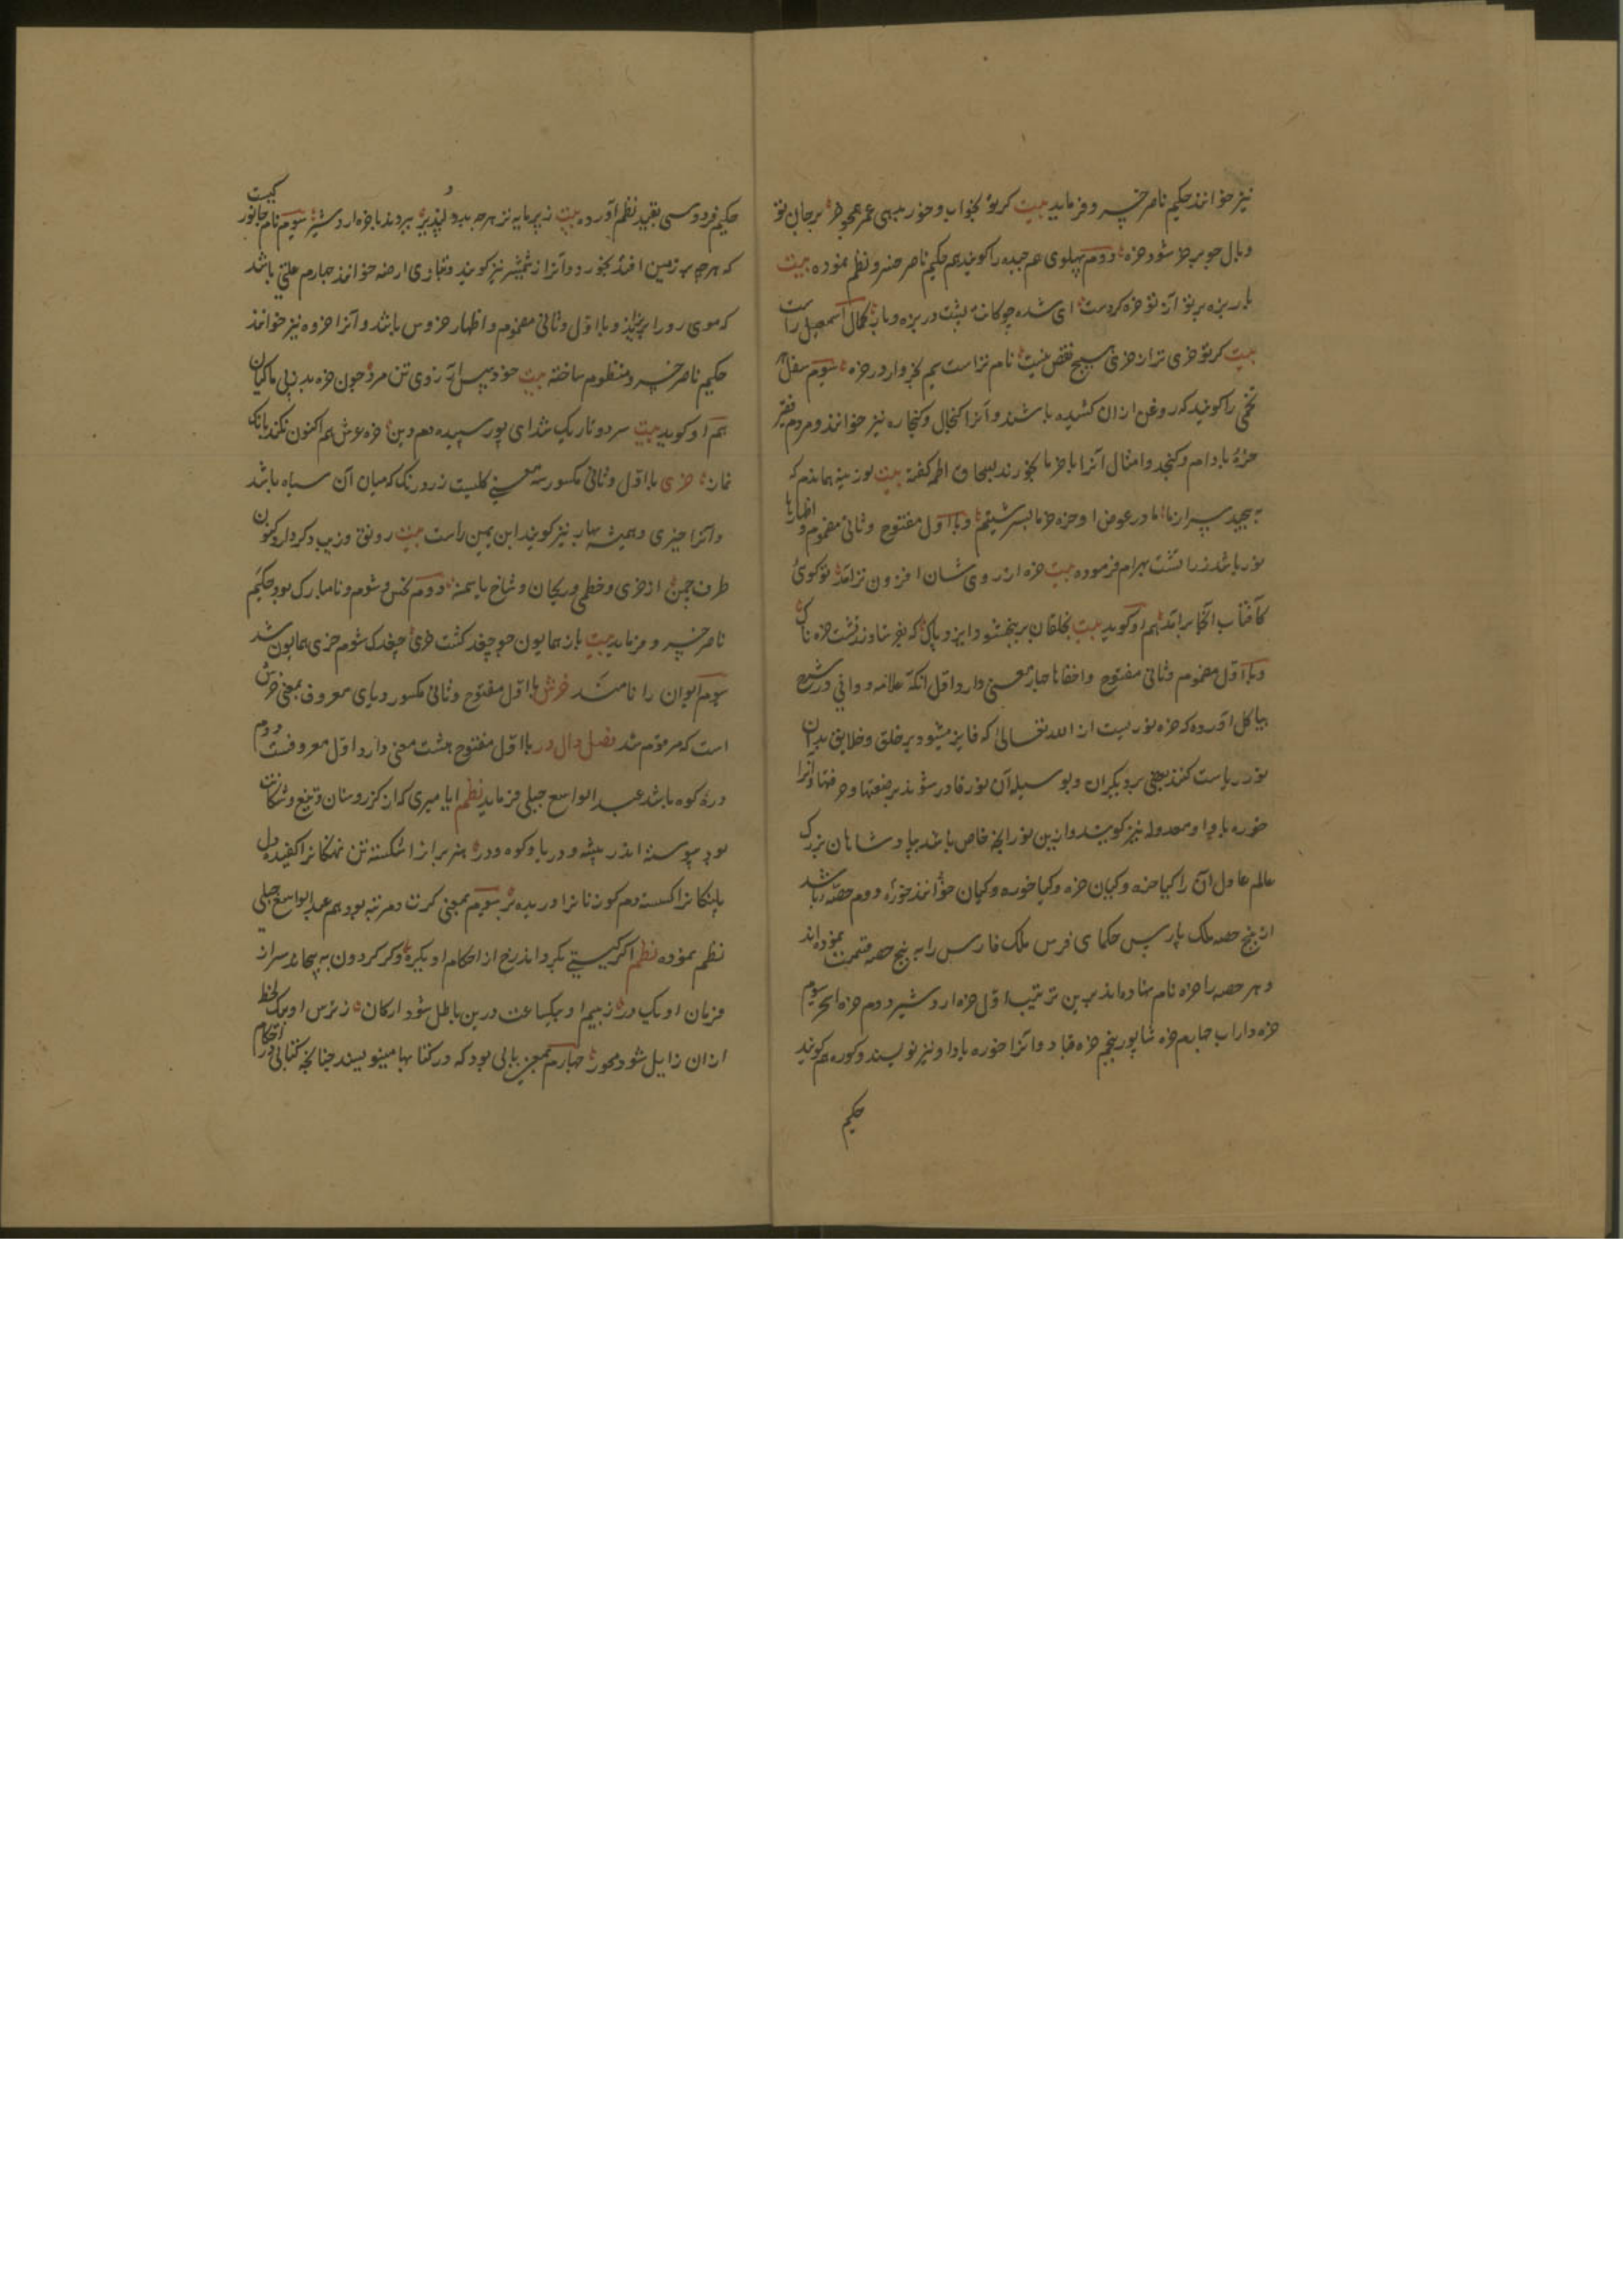 نیز خوانند حکیم ناصر خسرو فرماید بیت کر تو بخواب و خور بدهی عمر همچو خر بر جان تو
وبال چو بر خر شود خره دوم پهلوی هم چیده را کویند هم حکیم ناصر خسرو نظم نموده بیت
بار بزه بر تو آز تو خره کردست ای شده چوکانت پشت در بزه و بار کمال اسمعیل راست
بیت کر تو خری تر از خری هیچ نقص نیست نام تراست در خره سوم ثفل
تخمی را کویند که روغن ازان کشیده باشند و آنرا کنجال و کنجاره نیز خوانند و مردم فقیر
خرهٔ بادام و کنجد و امثال آنرا با خرما بخورند بسحاق اطعمه کفته بیت لوزینه بماندم که
به پیچد سراز ما ما در عوض او خره خرما بسر شتیم و با اول مفتوح و ثانی مضموم و اظهار ها
نور باشد زراتشت بهرام فرموده بیت خره از روی شان افزون تر آمد تو کوئی
کآفتاب آنجا برآمد هم او کوید بیت بخلقان بر ببخشود ایزد پاک که بفرستاد زرتشت خره ناک
و با اول مضموم و ثانی مفتوح و اخفا ها چار معنی دارد اول آنکه علامه دوانی در شرح
هیاکل آورده که خره نوریست از الله تعالی که فایز میشود بر خلق و خلایق بدان
نور ریاست کنند بعضی بر دیکران و بوسیله آن نور قادر شوند بر صنعتها و حرفتها و آنرا
خوره با واو معدوله نیز کویند و ازین نور آنچه خاص باشد بپادشاهان بزرک
عالم عادل آن را کیا خره و کیان خره و کیا خوره و کیان خوره خوانند دوم حصه باشد
از پنج حصه ملک پارس حکمای فرس ملک فارس را به پنج حصه قسمت نموده اند
و هر حصه را خره نام نهاده اند برین ترتیب اول خره اردشیر دوم خره استخر سوم
خره داراب چهارم خره شاپور پنجم خره قباد و آنرا خوره با واو نیز نویسند و کوره هم کویند
حکیم
حکیم فردوسی بقید نظم آورده بیت ز پر مایه تر هر چه بد دلپذیر ببردند با خره اردشیر سوم نام جانوریست
که هر چه بر زمین افتد بخورد و آنرا نیز کویند و بتازی ارضه خوانند چهارم علتی باشد
که موی رو را بریزند و با اول و ثانی مضموم و اظهار خروس باشد و آنرا خروه نیز خوانند
حکیم ناصر خسرو منظوم ساخته بیت آرزوی تن مرو چون خره بد ز پی ماکیان
هم او کوید بیت سرد و تاریک شد ای پور سپیده دم دین خره عرش هم اکنون بکند بانک
نماز خری با اول و ثانی مکسور سه معنی کلیست زرد رنک که میان آن سیاه باشد
و آنرا خیری و همیشه بهار نیز کویند ابن یمین راست بیت رونق و زیب دکر دارد کنون
طرف چمن از خری و خطمی و ریحان و شاخ یاسمن دوم نحس و شوم و نامبارک بود حکیم
ناصر خسرو فرماید بیت باز همایون چو چغد کشت خری چغدک شوم خری همایون شد
سوم ایوان را نامند خرش با اول مفتوح و ثانی مکسور و یای معروف بمعنی خرش
است که مرقوم شد فصل دال در با اول مفتوح هشت معنی دارد اول معروفست دوم
درهٔ کوه باشد عبد الواسع جبلی فرماید نظم ایا میری که از کرز و سنان و تیغ و شکافت
بود پیوسته اندر بیشه و دریا و کوه و در هنر بر از اشکسته تن نهنکانرا کفیده دل
پلنکانرا کسسته دم کوزنانرا دریده بر سوم بمعنی کرت و مرتبه بود هم عبد الواسع جبلی
نظم نموده نظم اکر کیتی بکرداند رخ از احکام او یکره و کر کردون به پیچاند سر از
فرمان او یک در ز بیم او بیکساعت درین باطل شود ارکان ز ترس او بیک لحظه
ازان زایل شود محور چهارم بمعنی بابی بود که در کتابها مینویسند چنانچه کتابی در احکام